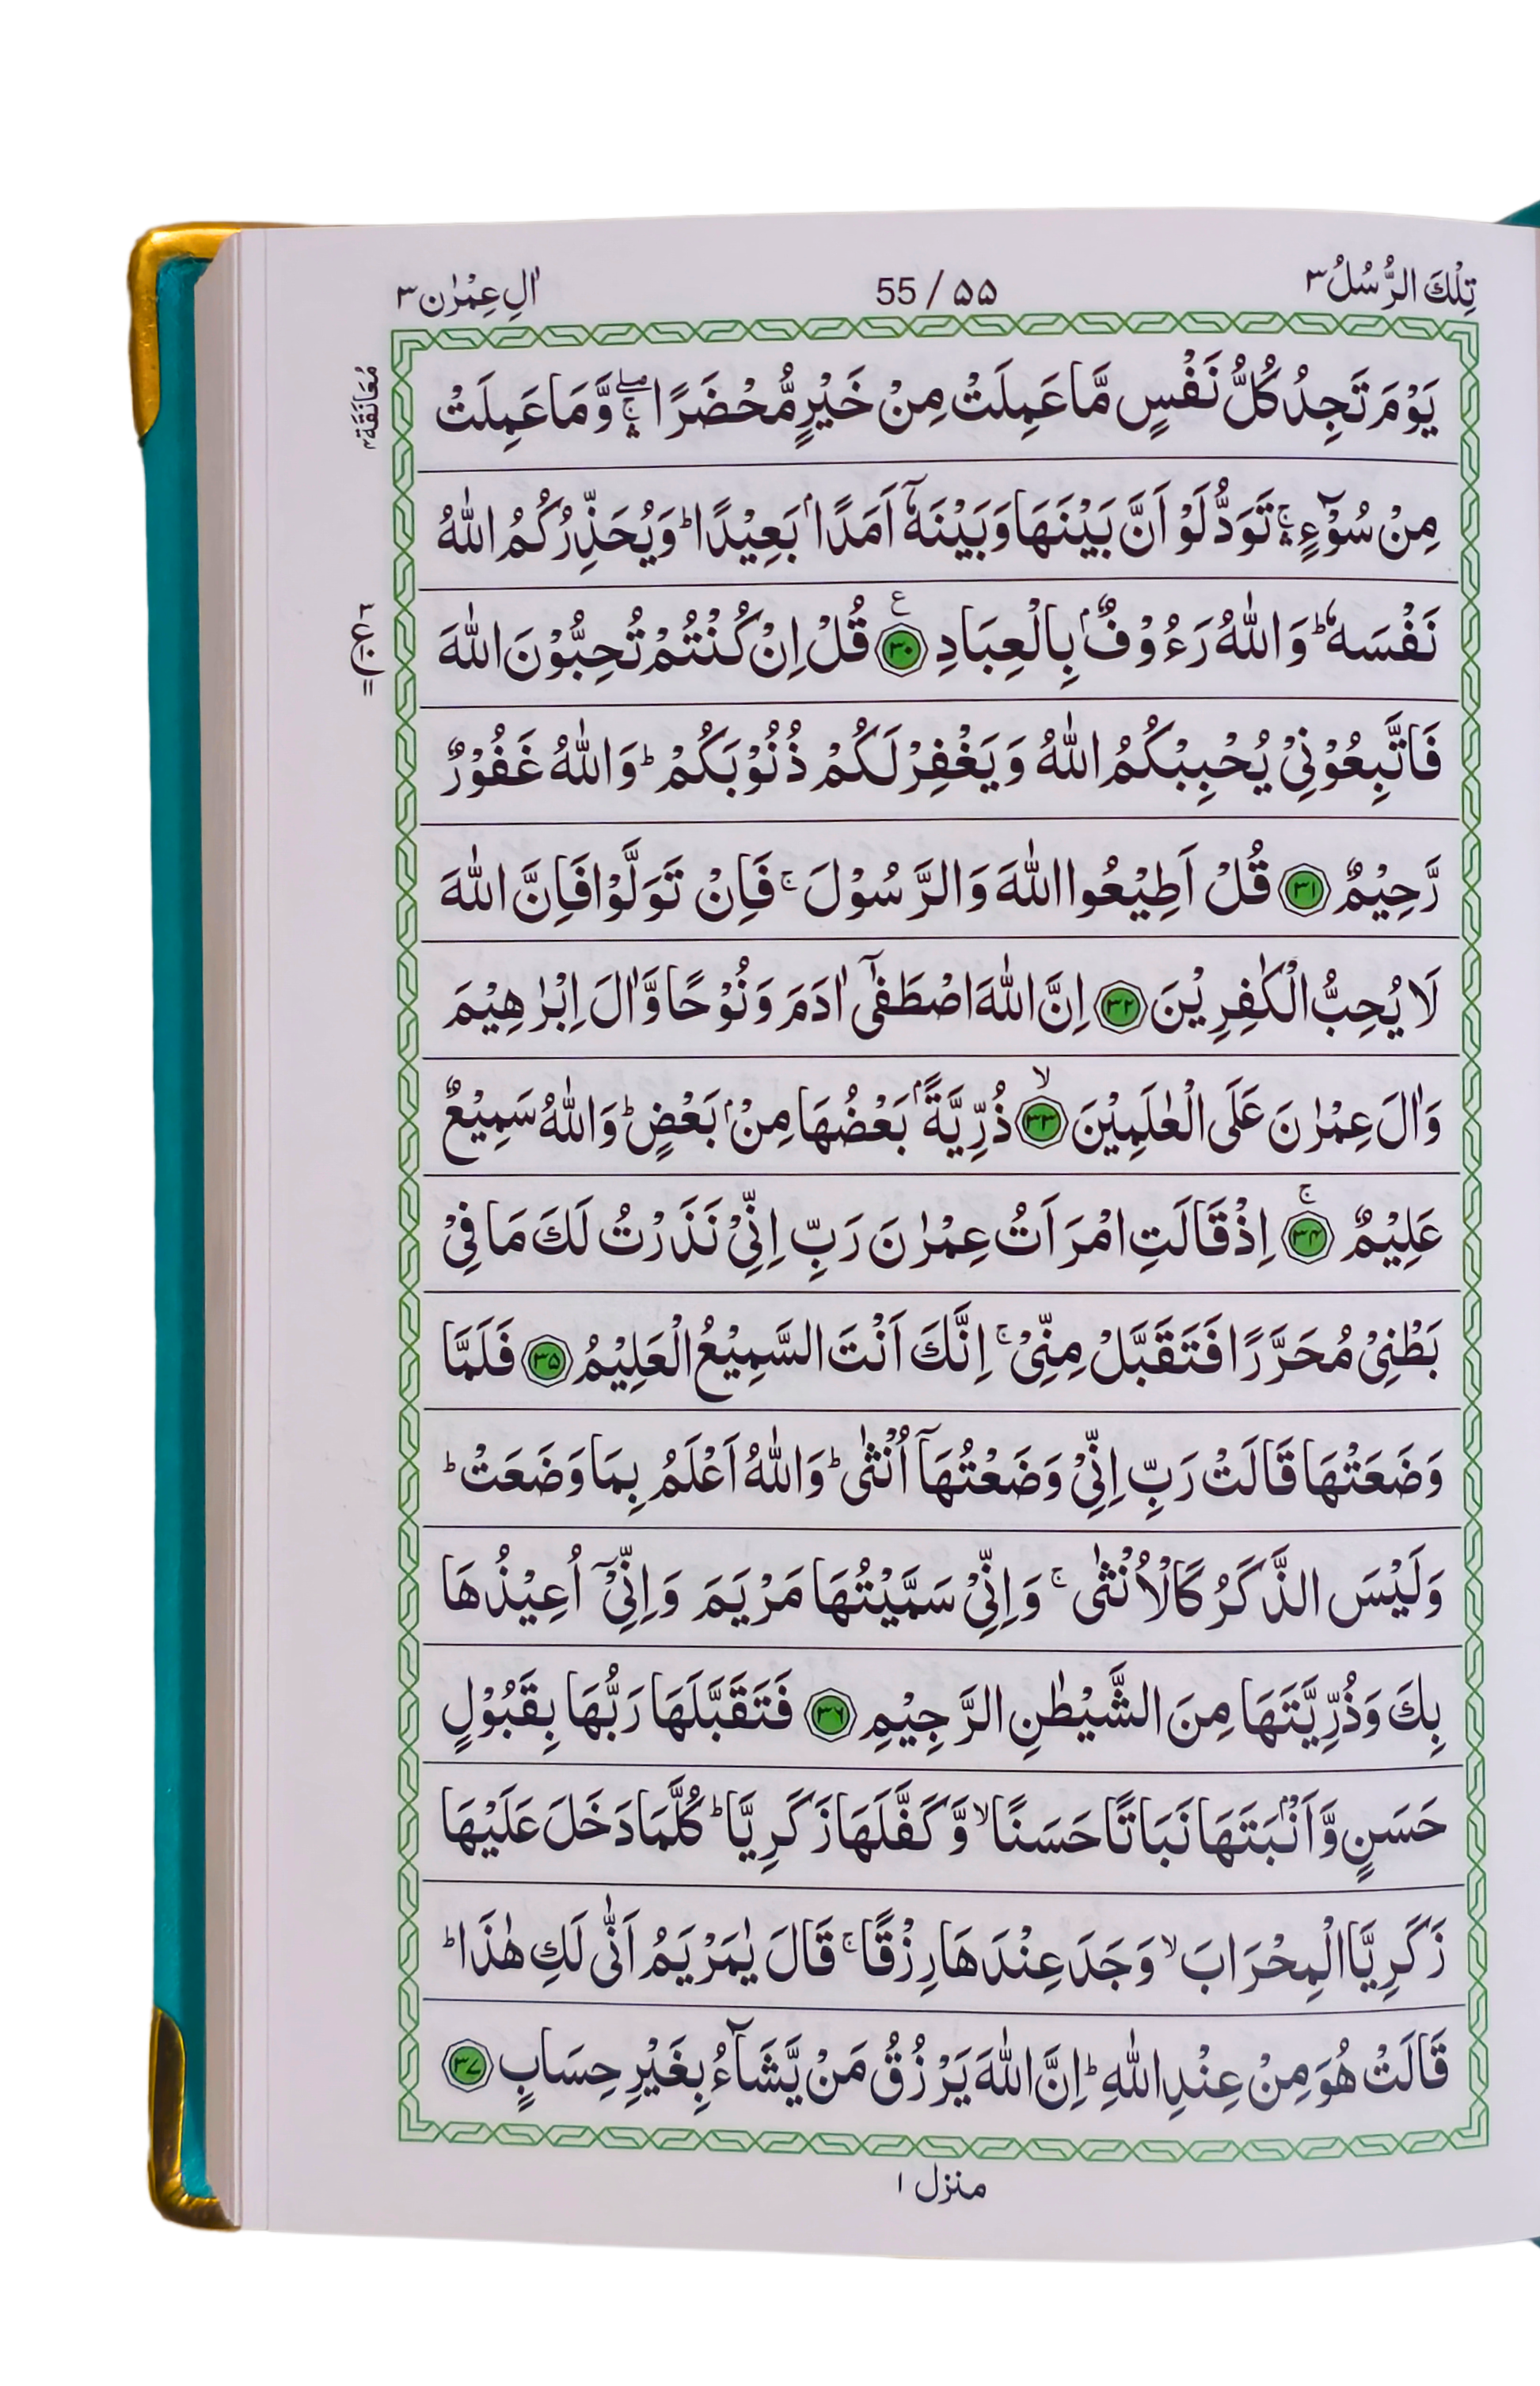 تِلْكَ الرُّسُلُ ٣
۵۵ / 55
اٰلِ عِمْرٰن ٣
مُعَانَقَة
يَوْمَ تَجِدُ كُلُّ نَفْسٍ مَّا عَمِلَتْ مِنْ خَيْرٍ مُّحْضَرًا ۛۖۚ وَّمَا عَمِلَتْ
مِنْ سُوْٓءٍ ۛۚ تَوَدُّ لَوْ اَنَّ بَيْنَهَا وَبَيْنَهٗٓ اَمَدًاۢ بَعِيْدًا ؕ وَيُحَذِّرُكُمُ اللّٰهُ
نَفْسَهٗ ؕ وَاللّٰهُ رَءُوْفٌۢ بِالْعِبَادِ ۳۰ ع قُلْ اِنْ كُنْتُمْ تُحِبُّوْنَ اللّٰهَ
فَاتَّبِعُوْنِيْ يُحْبِبْكُمُ اللّٰهُ وَيَغْفِرْ لَكُمْ ذُنُوْبَكُمْ ؕ وَاللّٰهُ غَفُوْرٌ
رَّحِيْمٌ ۳۱ قُلْ اَطِيْعُوا اللّٰهَ وَالرَّسُوْلَ ۚ فَاِنْ تَوَلَّوْا فَاِنَّ اللّٰهَ
لَا يُحِبُّ الْكٰفِرِيْنَ ۳۲ اِنَّ اللّٰهَ اصْطَفٰٓى اٰدَمَ وَنُوْحًا وَّاٰلَ اِبْرٰهِيْمَ
وَاٰلَ عِمْرٰنَ عَلَى الْعٰلَمِيْنَ ۳۳ ۙ ذُرِّيَّةًۢ بَعْضُهَا مِنْۢ بَعْضٍ ؕ وَاللّٰهُ سَمِيْعٌ
عَلِيْمٌ ۳۴ ۚ اِذْ قَالَتِ امْرَاَتُ عِمْرٰنَ رَبِّ اِنِّيْ نَذَرْتُ لَكَ مَا فِيْ
بَطْنِيْ مُحَرَّرًا فَتَقَبَّلْ مِنِّيْ ۚ اِنَّكَ اَنْتَ السَّمِيْعُ الْعَلِيْمُ ۳۵ فَلَمَّا
وَضَعَتْهَا قَالَتْ رَبِّ اِنِّيْ وَضَعْتُهَآ اُنْثٰى ؕ وَاللّٰهُ اَعْلَمُ بِمَا وَضَعَتْ ؕ
وَلَيْسَ الذَّكَرُ كَالْاُنْثٰى ۚ وَاِنِّيْ سَمَّيْتُهَا مَرْيَمَ وَاِنِّيْٓ اُعِيْذُهَا
بِكَ وَذُرِّيَّتَهَا مِنَ الشَّيْطٰنِ الرَّجِيْمِ ۳۶ فَتَقَبَّلَهَا رَبُّهَا بِقَبُوْلٍ
حَسَنٍ وَّاَنْۢبَتَهَا نَبَاتًا حَسَنًا ۙ وَّكَفَّلَهَا زَكَرِيَّا ؕ كُلَّمَا دَخَلَ عَلَيْهَا
زَكَرِيَّا الْمِحْرَابَ ۙ وَجَدَ عِنْدَهَا رِزْقًا ۚ قَالَ يٰمَرْيَمُ اَنّٰى لَكِ هٰذَا ؕ
قَالَتْ هُوَ مِنْ عِنْدِ اللّٰهِ ؕ اِنَّ اللّٰهَ يَرْزُقُ مَنْ يَّشَآءُ بِغَيْرِ حِسَابٍ ۳۷
منزل ١